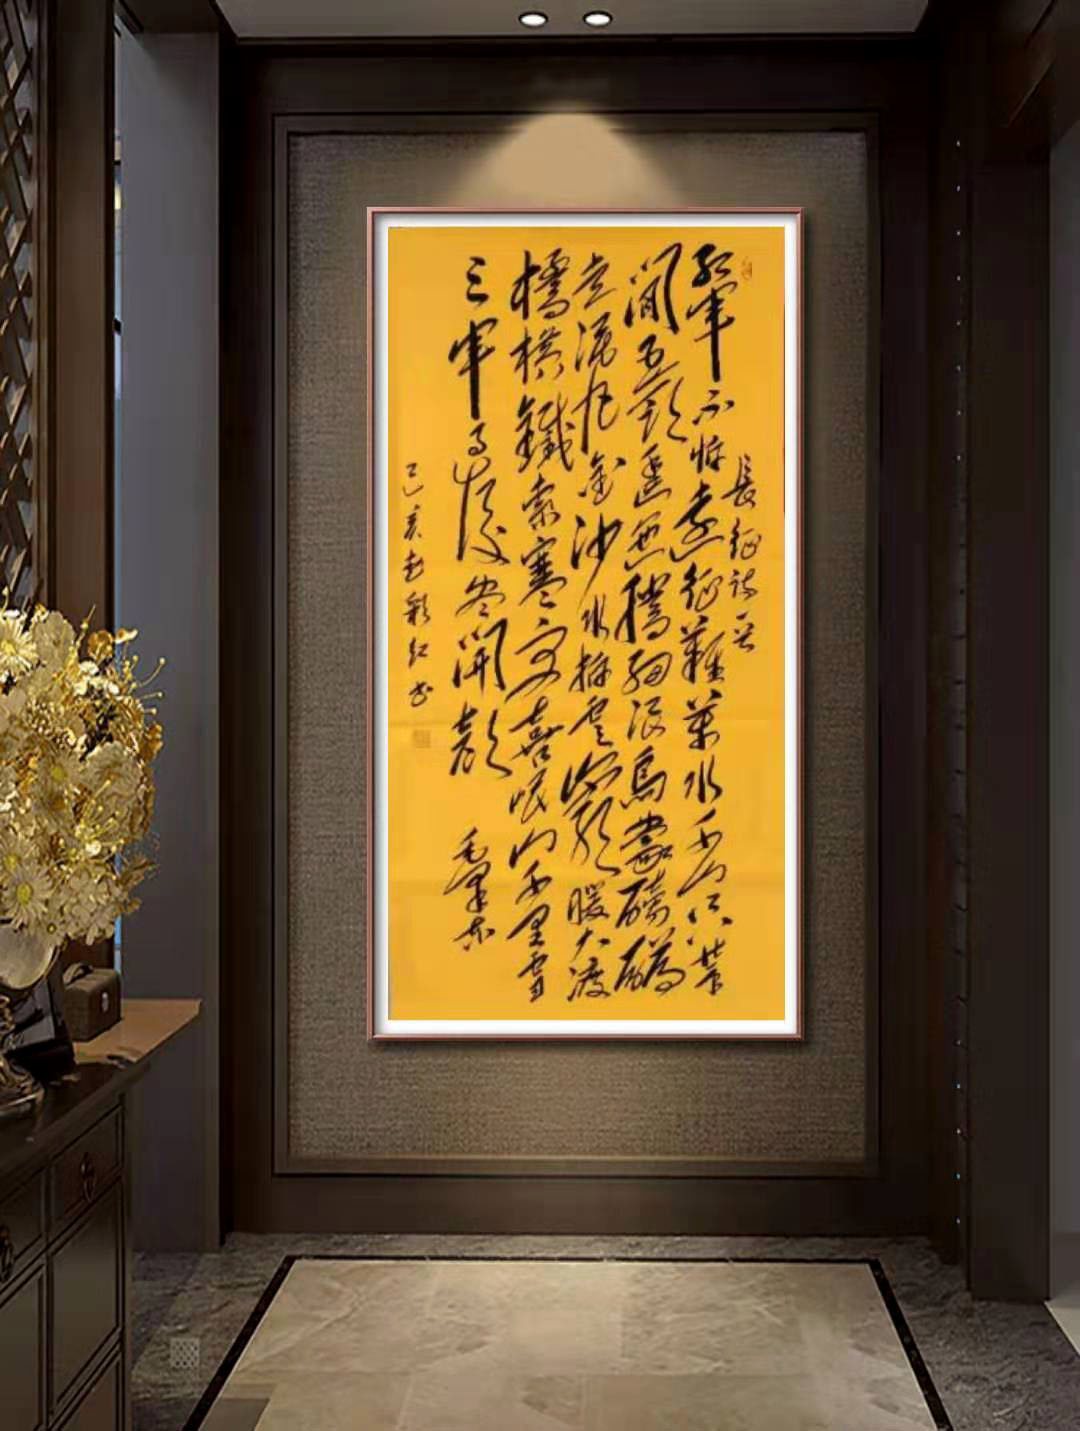 長征詩一首
紅軍不怕遠征難萬水千山只等
閒五嶺逶迤騰細浪烏蒙磅礴
走泥丸金沙水拍雲崖暖大渡
橋橫鐵索寒更喜岷山千里雪
三軍過後盡開顏
毛澤東
己亥彩红书